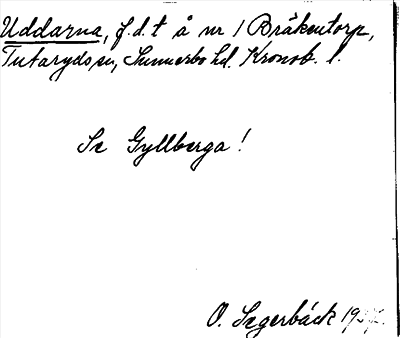 Uddarna, f.d.t å nr 1 Bråkentorp,
Tutaryds sn, Sunnerbo hd. Kronob. l.
Se Gyllberga!
O. Segerbäck